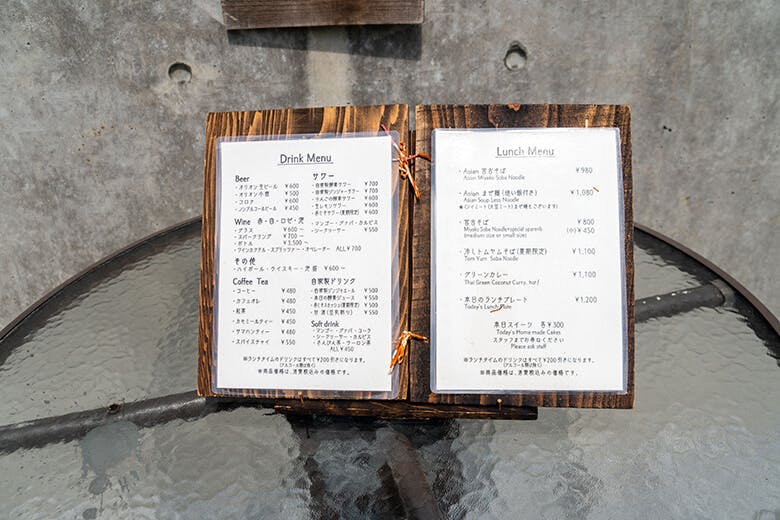 Drink Menu
Beer
・オリオン生ビール ¥600
・オリオン小瓶 ¥500
・コロナ ¥600
・ノンアルコールビール ¥450
Wine 赤・白・ロゼ・泡
・グラス ¥600～
・スパークリング ¥700～
・ボトル ¥3,500～
・ワインカクテル・スプリッツァー・オペレーター ALL¥700
その他
・ハイボール・ウイスキー・泡盛 ¥600～
Coffee Tea
・コーヒー ¥480
・カフェオレ ¥480
・紅茶 ¥450
・カモミールティー ¥450
・サマハンティー ¥480
・スパイスチャイ ¥550
サワー
・自家製酵素サワー ¥700
・自家製ジンジャーサワー ¥700
・りんごの酵素サワー ¥600
・生レモンサワー ¥600
・赤しそサワー(夏期限定) ¥600
・マンゴー・グァバ・カルピス
・シークヮーサー ¥550
自家製ドリンク
・自家製ジンジャエール ¥500
・本日の酵素ジュース ¥550
・赤しそスカッシュ(夏期限定) ¥500
・甘酒(豆乳割り) ¥550
Soft drink
・マンゴー・グァバ・コーラ
・シークヮーサー・カルピス
・さんぴん茶・ウーロン茶
ALL¥450
※ランチタイムのドリンクはすべて¥200引きになります。
(アルコール類は除く)
※商品価格は、消費税込みの価格です。
Lunch Menu
・Asian 宮古そば ¥980
Asian Miyako Soba Noodle
・Asian まぜ麺(追い飯付き) ¥1,080
Asian Soup Less Noodle
※(ソイミート(大豆ミート)まぜ麺もございます)
・宮古そば ¥800
Miyako Soba Noodle+special sparerib (小)¥450
(medium size or small size)
・冷しトムヤムそば(夏期限定) ¥1,100
Tom Yum Soba Noodle
・グリーンカレー ¥1,100
Thai Green Coconut Curry, hot!
・本日のランチプレート ¥1,200
Today's Lunch Plate
本日スイーツ 各¥300
Today's Home made Cakes
スタッフまでお尋ねください
Please ask staff
※ランチタイムのドリンクはすべて¥200引きになります。
(アルコール類は除く)
※商品価格は、消費税込みの価格です。